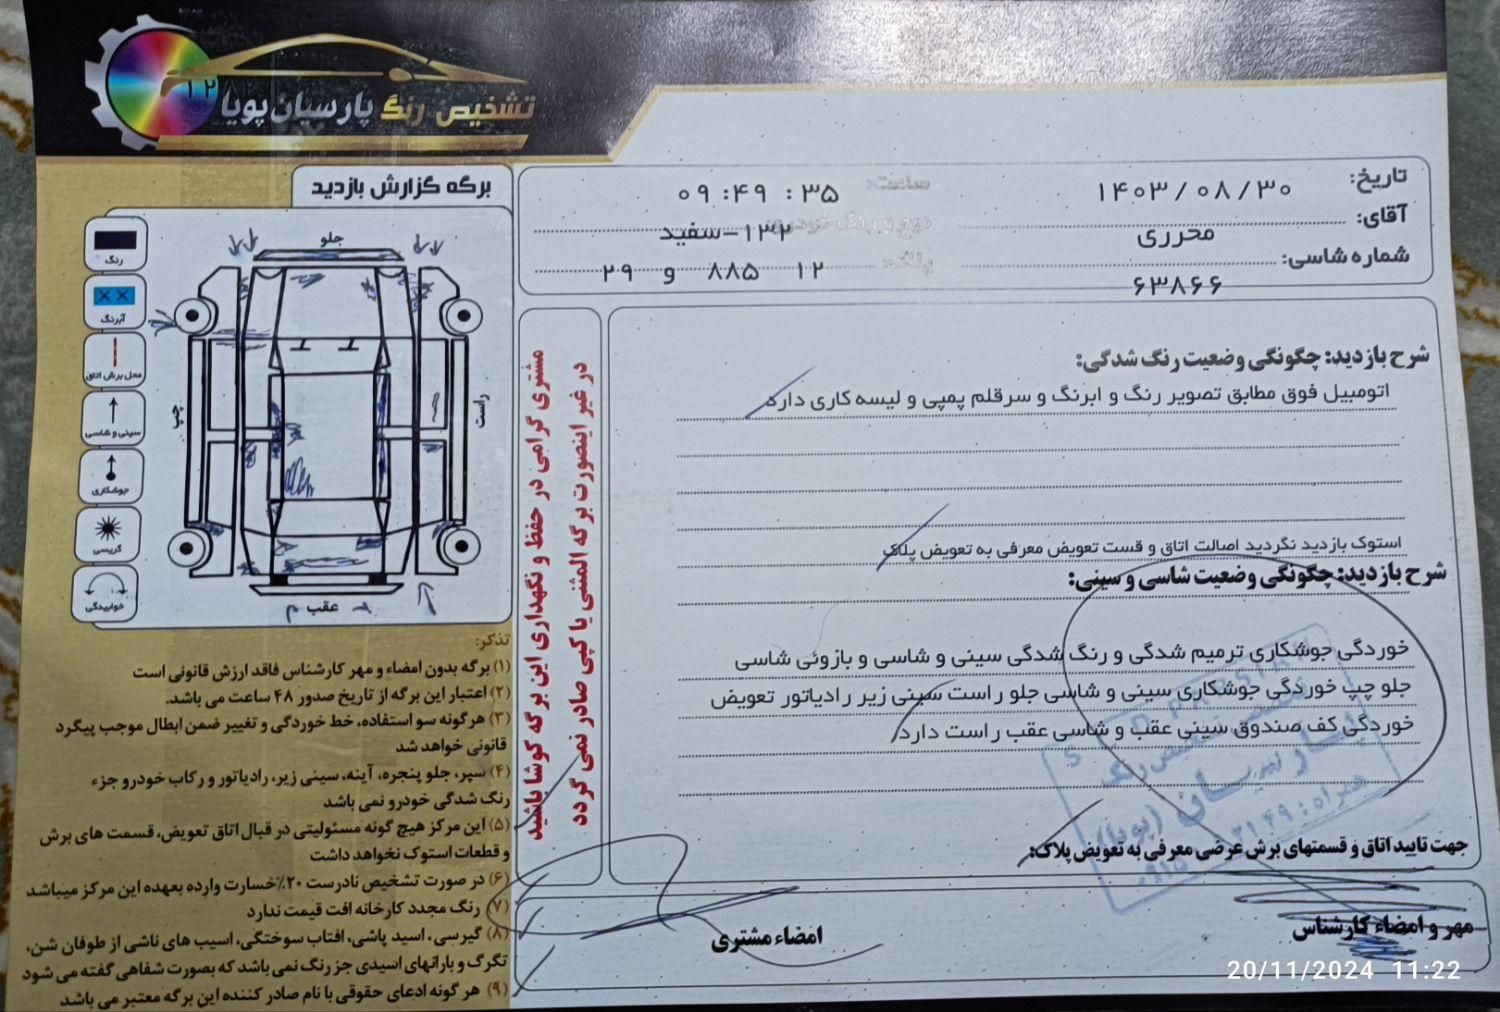 تشخیص رنگ پارسیان پویا
برگه گزارش بازدید
تاریخ: ۱۴۰۳/۰۸/۳۰
ساعت: ۰۹:۴۹:۳۵
آقای: محرری
۱۳۲-سفید
شماره شاسی: ۶۳۸۶۶
۱۲ ۸۸۵ و ۲۹
جلو
راست
چپ
عقب
رنگ
آبرنگ
محل برش اتاق
سینی و شاسی
جوشکاری
گریسی
خوابیدگی
مشتری گرامی در حفظ و نگهداری این برگه کوشا باشید
در غیر اینصورت برگه المثنی یا کپی صادر نمی گردد
شرح بازدید: چگونگی وضعیت رنگ شدگی:
اتومبیل فوق مطابق تصویر رنگ و ابرنگ و سرقلم پمپی و لیسه کاری دارد
استوک بازدید نگردید اصالت اتاق و قست تعویض معرفی به تعویض پلاک
شرح بازدید: چگونگی وضعیت شاسی و سینی:
خوردگی جوشکاری ترمیم شدگی و رنگ شدگی سینی و شاسی و بازوئی شاسی
جلو چپ خوردگی جوشکاری سینی و شاسی جلو راست سینی زیر رادیاتور تعویض
خوردگی کف صندوق سینی عقب و شاسی عقب راست دارد
جهت تایید اتاق و قسمتهای برش عرضی معرفی به تعویض پلاک:
تشخیص رنگ
پارسیان (پویا)
مهر و امضاء کارشناس
امضاء مشتری
تذکر:
۱) برگه بدون امضاء و مهر کارشناس فاقد ارزش قانونی است
۲) اعتبار این برگه از تاریخ صدور ۴۸ ساعت می باشد.
۳) هرگونه سو استفاده، خط خوردگی و تغییر ضمن ابطال موجب پیگرد
قانونی خواهد شد
۴) سپر، جلو پنجره، آینه، سینی زیر، رادیاتور و رکاب خودرو جزء
رنگ شدگی خودرو نمی باشد
۵) این مرکز هیچ گونه مسئولیتی در قبال اتاق تعویض، قسمت های برش
و قطعات استوک نخواهد داشت
۶) در صورت تشخیص نادرست ۲۰٪خسارت وارده بعهده این مرکز میباشد
۷) رنگ مجدد کارخانه افت قیمت ندارد
۸) گیرسی، اسید پاشی، افتاب سوختگی، اسیب های ناشی از طوفان شن،
تگرگ و بارانهای اسیدی جز رنگ نمی باشد که بصورت شفاهی گفته می شود
۹) هر گونه ادعای حقوقی با نام صادر کننده این برگه معتبر می باشد
20/11/2024 11:22